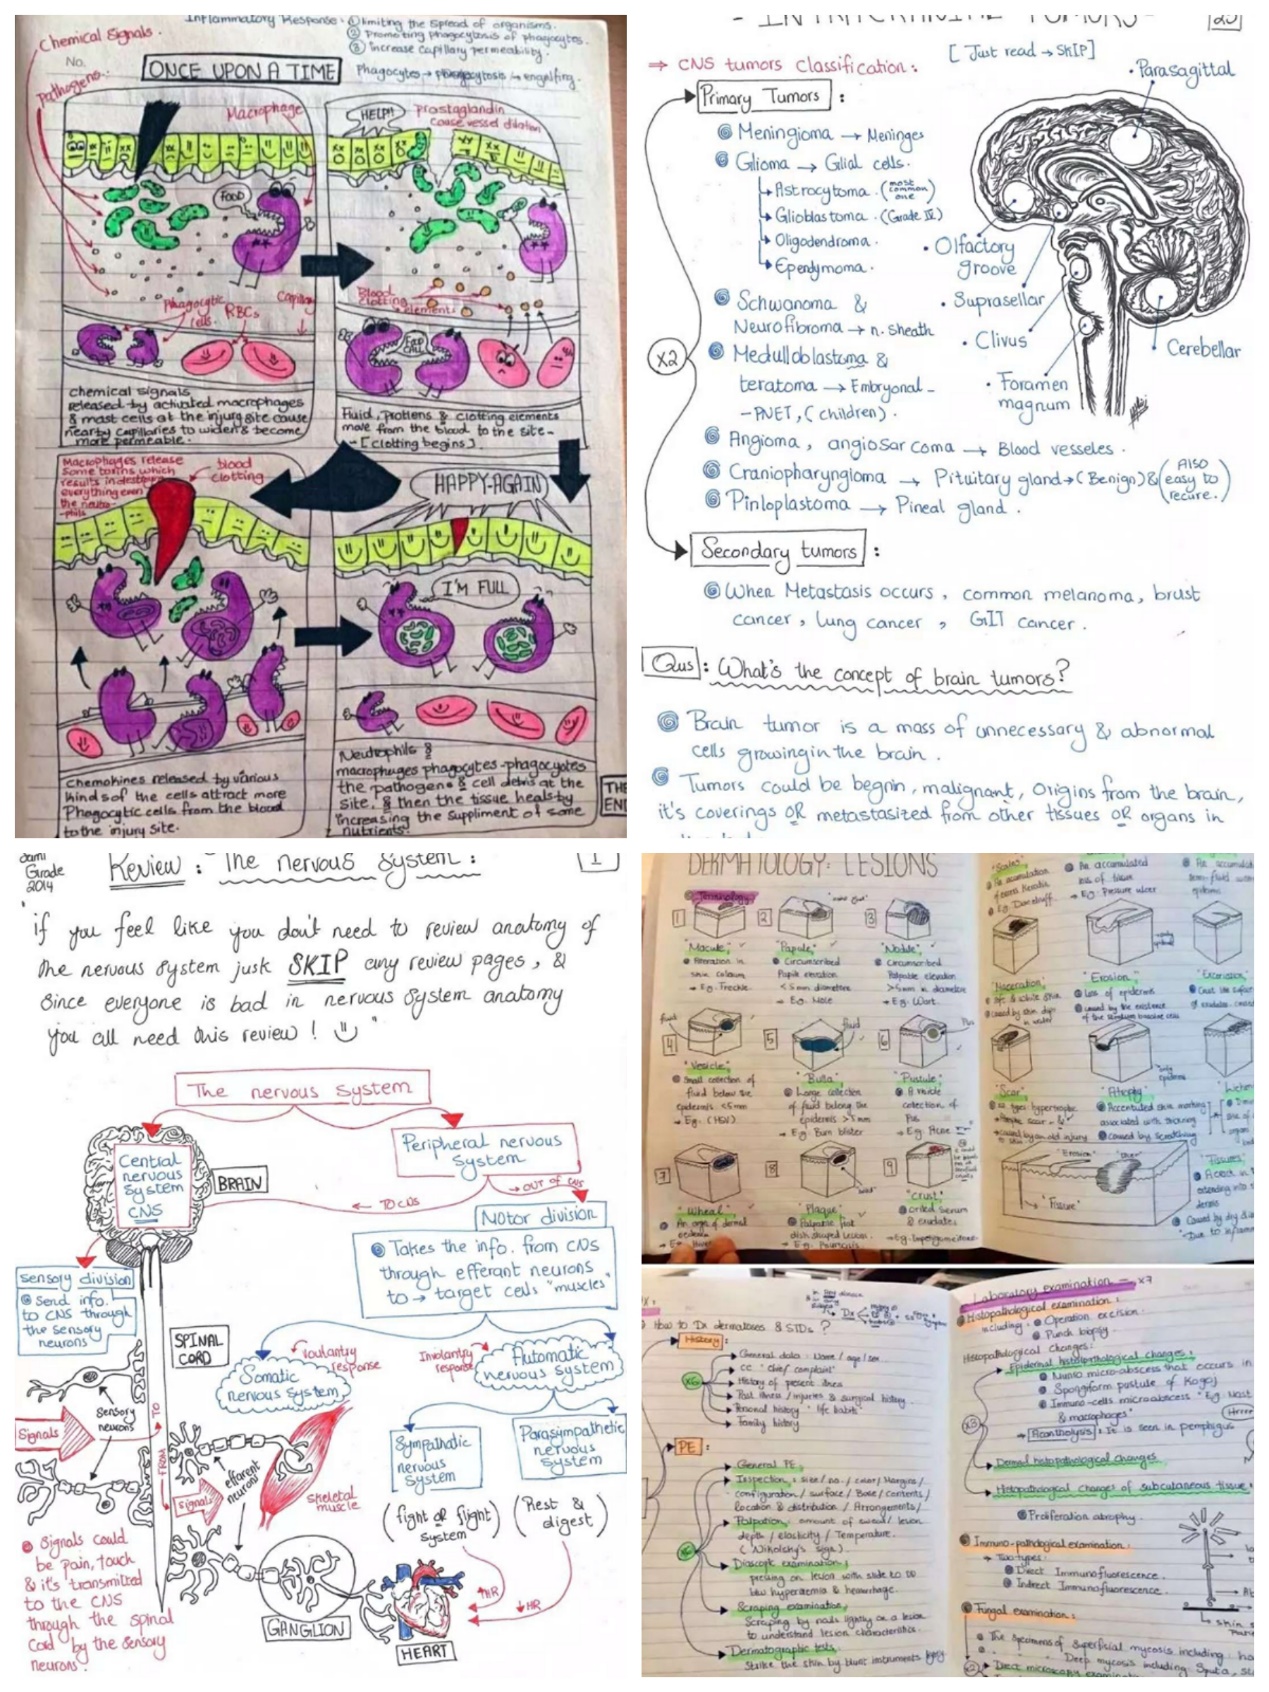 Inflammatory Response: ① limiting the spread of organisms.
② Promoting phagocytosis of phagocytes.
③ Increase Capillary permeability.
Phagocytes → phagocytosis → engulfing.
Chemical Signals.
No.
Pathogens
ONCE UPON A TIME
Macrophage
FOOD
Phagocytic cells.
RBCs
Capillary
chemical signals
released by activated macrophages
& mast cells at the injury site cause
nearby capillaries to widen & become
more permeable.
HELP!!
prostaglandin
cause vessel dilation
Blood
clotting
elements
FOOD
CALL
Fluid, Protiens & clotting elements
move from the blood to the site-
-[clotting begins]
Macrophages release
some toxins which
results in destroying
everything even
the neutro-
-phils
blood
clotting
Chemokines released by various
kinds of the cells attract more
Phagocytic cells from the blood
to the injury site.
HAPPY-AGAIN
I'M FULL
Neutrophils &
macrophuges phagocytes-phagocytes
the pathogens & cell debris at the
site, & then the tissue heals by
increasing the suppliment of some
nutrients.
THE
END
- INTRACRANIAL TUMORS -
25
[ Just read → SKIP]
⇒ CNS tumors classification:
Primary Tumors :
Meningioma → Meninges
Glioma → Glial cells.
Astrocytoma. (most common one)
Glioblastoma. (Grade IV)
Oligodendroma.
Ependymoma.
Schwanoma &
Neurofibroma → n. sheath
Medulloblastoma &
teratoma → Embryonal-
-PNET, (children).
Angioma, angiosarcoma → Blood vesseles.
Craniopharyngioma → Pituitary gland → (Benign) & (Also easy to recure.)
Pinloplastoma → Pineal gland.
X2
• Parasagittal
• Olfactory
groove
• Suprasellar
• Clivus
• Foramen
magnum
• Cerebellar
Secondary tumors :
When Metastasis occurs, common melanoma, brust
cancer, lung cancer, GIT cancer.
Qus : What's the concept of brain tumors?
Brain tumor is a mass of unnecessary & abnormal
cells growing in the brain.
Tumors could be begnin, malignant, Origins from the brain,
it's coverings OR metastasized from other tissues OR organs in
Sami
Grade
2014
Review : The nervous system :
1
"if you feel like you don't need to review anatomy of
the nervous system jusk SKIP any review pages, &
Since everyone is bad in nervous system anatomy
you all need this review! "
The nervous system
Central
nervous
System
CNS
BRAIN
Peripheral nervous
system
→ TO CNS
→ OUT OF CNS
Motor division
Takes the info. from CNS
through efferant neurons
to → target cells "muscles"
Sensory division
Send info.
to CNS through
the sensory
neurons
SPINAL
CORD
Voulantry
response
Involantry
response
Somatic
nervous System
Automatic
nervous system
Signals
Sensory
neurons
FROM
TO
efferent
neuron
Signals
Skeletal
muscle
Sympathatic
nervous
System
Parasympathetic
nervous
system
(fight or flight)
system
(Rest &
digest)
Signals could
be pain, touch
& it's transmitted
to the CNS
through the spinal
Cord by the sensory
neurons.
GANGLION
↑HR
↓HR
HEART
DERMATOLOGY: LESIONS
Terminology
1
2
3
"Macule"
Alteration in
skin colour
→ Eg. Freckle
"Papule"
Circumscribed
< 5 mm diametre
→ Eg. Nose
"Nodule"
Circumscribed
Palpable elevation
> 5 mm in diametre
→ Eg. Wart.
4
fluid
5
fluid
6
Pus
"Vesicle"
Small collection of
fluid below the
epidermis < 5 mm
→ Eg. (HSV)
"Bulla"
Large collection
of fluid belong the
epidermis > 5 mm
→ Eg. Burn blister
"Pustule"
collection of
Pus
→ Eg. Acne
7
8
9
"Wheal"
"Plaque"
Palpable flat
disk shaped lesion
"Crust"
& exudates
"Scales"
→ Eg. Dandruff
An accumulated
loss of tissue
→ Eg. Pressure ulcer
"Maceration"
"Erosion"
Loss of epidermis
"Scar"
"Atrophy"
associated with
Caused by scratching
"Erosion"
"Ulcer"
"Fissure"
"Fissure"
How to Dx dermatoses & STDs ?
History:
X6
General data: Name / age / sex
CC "chief complaint"
History of present illness
Past illness / injuries & surgical history
Personal history "life habits"
Family history
PE :
General PE
Inspection: size / no. / color / Margins /
configuration / surface / Base / Contents /
location & distribution / Arrangements /
Palpation: amount of lesion
depth / elasticity / Temperature.
(Nikolsky's sign).
Diascopic examination:
pressing on lesion with slide to
hyperaemia & hemorrhage.
Scraping examination:
Scraping by nails lightly on a lesion
to understand lesion characteristics.
Dermatographic tests:
Strike the skin by blunt instruments
Laboratory examination - x7
Histopathological examination:
including: Operation excision.
Punch biopsy.
Histopathological Changes:
Epidermal histopathological changes:
Munro micro-abscess that occurs in
Spongiform pustule of Kogoj
& macrophages"
→ Acantholysis: It is seen in pemphigus
X3
Dermal histopathological changes
Histopathological changes of subcutaneous tissue
Proliferation atrophy.
Immuno-pathological examination:
→ Two types:
Direct Immunofluorescence.
Indirect Immunofluorescence.
Fungal examination:
The specimens of superficial mycosis including:
Deep mycosis including:
Direct microscopy